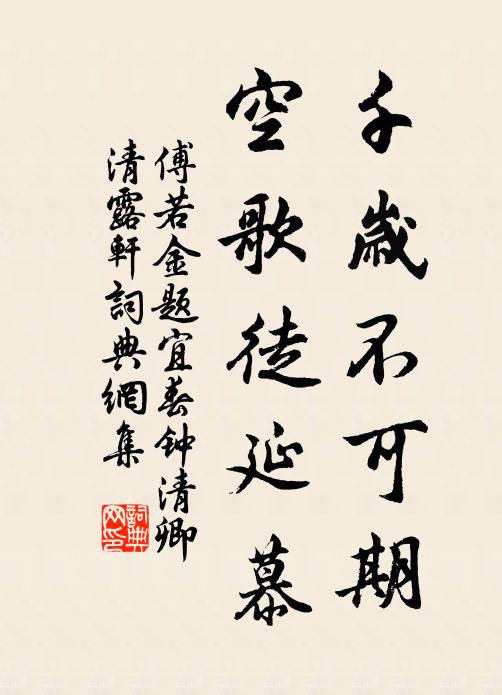 千歲不可期
空歌徒延慕
傅若金題宜春钟清卿
清露軒詞典網集
詞典網印